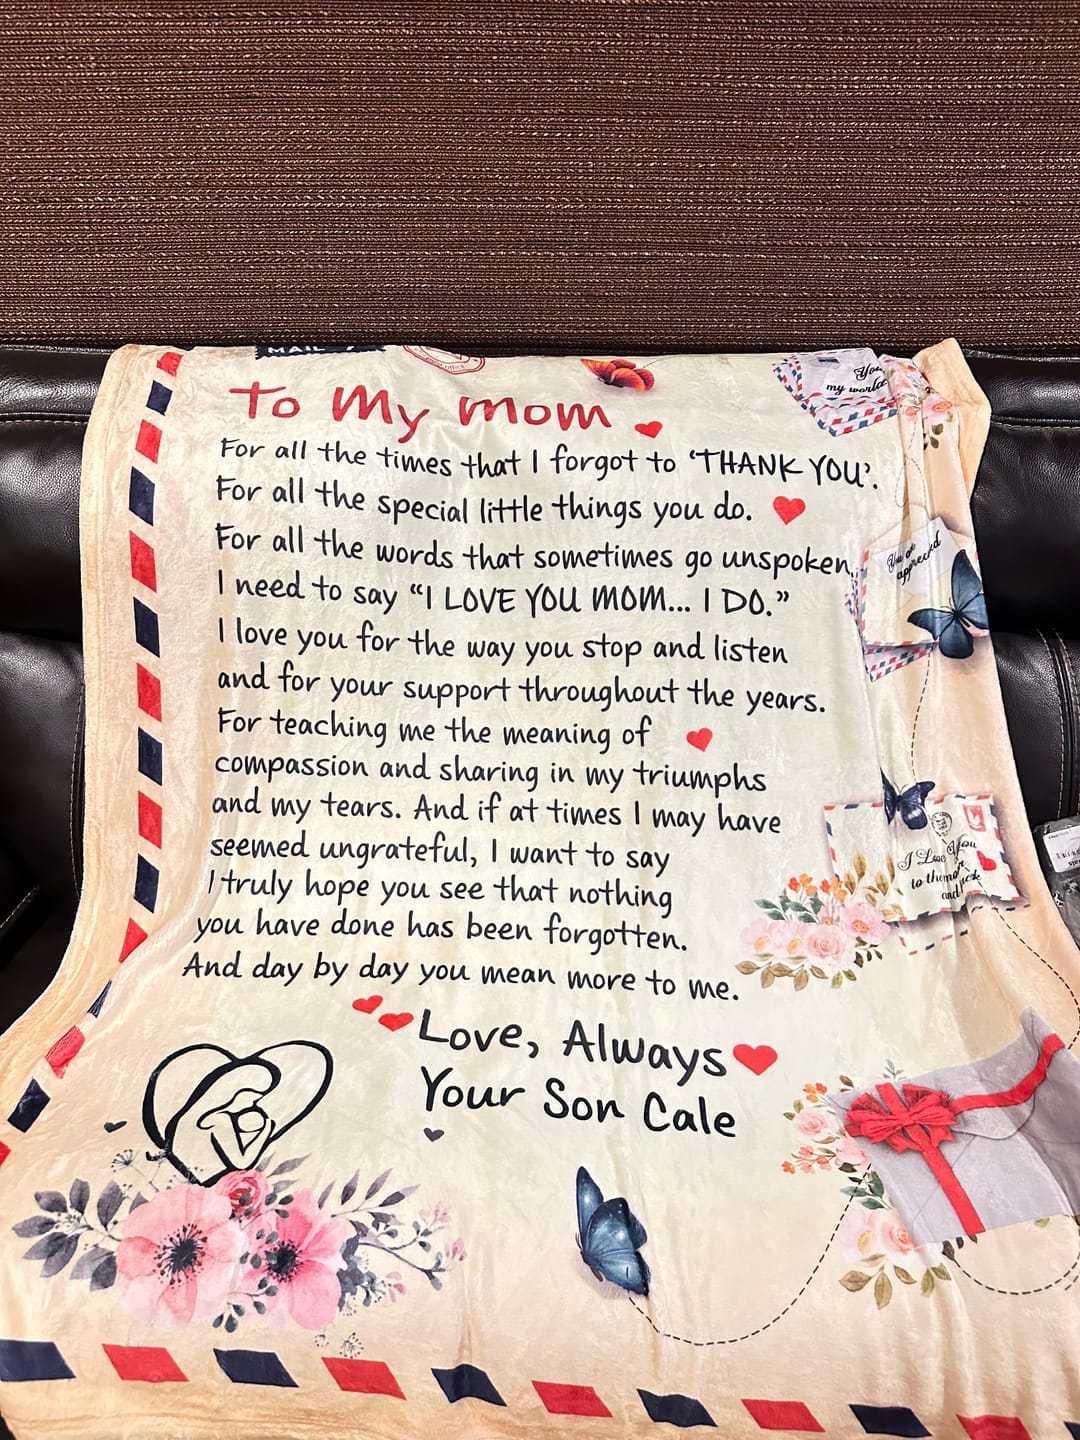 MAIL
To My Mom
For all the times that I forgot to ‘THANK YOU’.
For all the special little things you do.
For all the words that sometimes go unspoken,
I need to say “I LOVE YOU MOM... I DO.”
I love you for the way you stop and listen
and for your support throughout the years.
For teaching me the meaning of
compassion and sharing in my triumphs
and my tears. And if at times I may have
seemed ungrateful, I want to say
I truly hope you see that nothing
you have done has been forgotten.
And day by day you mean more to me.
Love, Always
Your Son Cale
my world
I Love You
to the
and